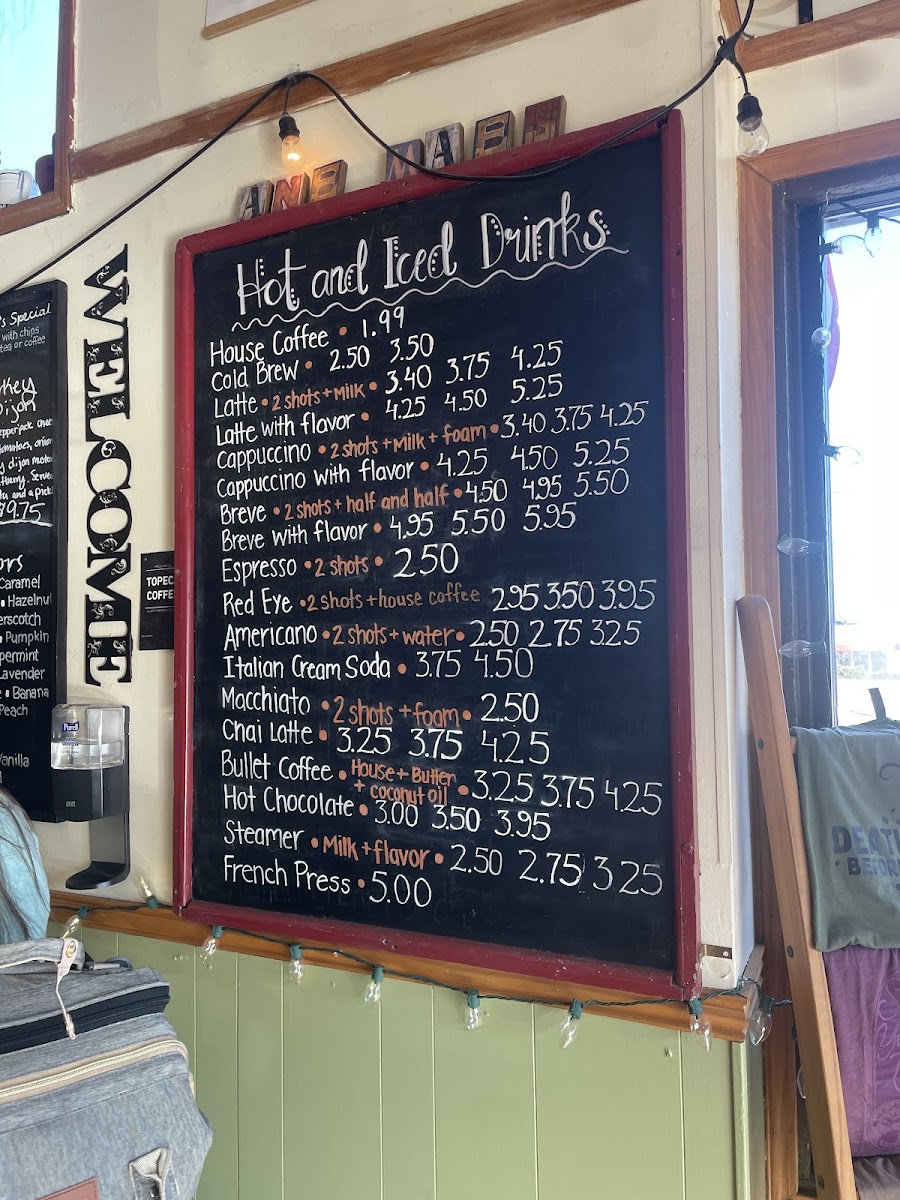 ANE MAES
Hot and Iced Drinks
House Coffee • 1.99
Cold Brew • 2.50 3.50
Latte • 2 shots + milk • 3.40 3.75 4.25
Latte with flavor • 4.25 4.50 5.25
Cappuccino • 2 shots + milk + foam • 3.40 3.75 4.25
Cappuccino with flavor • 4.25 4.50 5.25
Breve • 2 shots + half and half • 4.50 4.95 5.50
Breve with flavor • 4.95 5.50 5.95
Espresso • 2 shots • 2.50
Red Eye • 2 shots + house coffee 2.95 3.50 3.95
Americano • 2 shots + water • 2.50 2.75 3.25
Italian Cream Soda • 3.75 4.50
Macchiato • 2 shots + foam • 2.50
Chai Latte • 3.25 3.75 4.25
Bullet Coffee • House + Butter
+ coconut oil • 3.25 3.75 4.25
Hot Chocolate • 3.00 3.50 3.95
Steamer • Milk + flavor • 2.50 2.75 3.25
French Press • 5.00
WELCOME
's Special
with chips
tea or coffee
key
ijon
epperjack
tomatoes,
dijon
and a
9.75
ors
Caramel
• Hazelnut
erscotch
• Pumpkin
permint
Lavender
• Banana
Peach
Vanilla
TOPEC
COFFE
Purell
DEATH
BEFOR